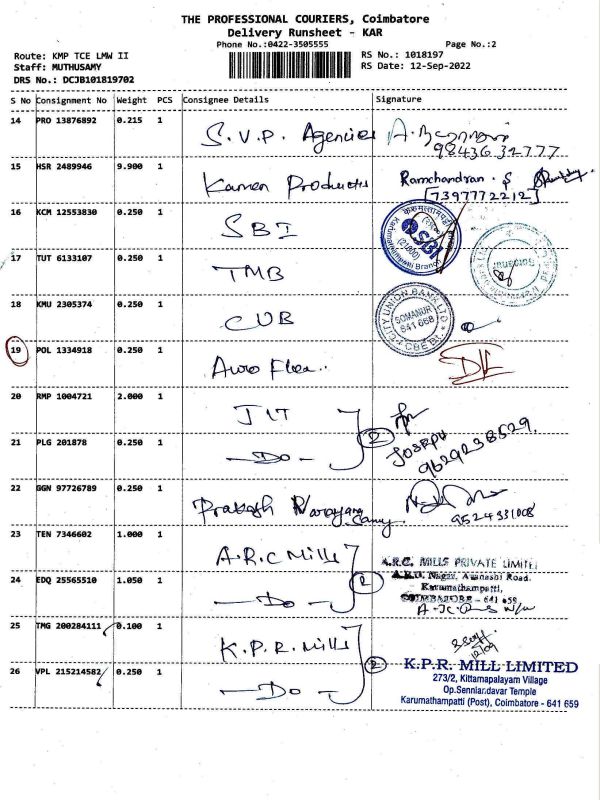 THE PROFESSIONAL COURIERS, Coimbatore
Delivery Runsheet - KAR
Phone No.:0422-3505555
Page No.:2
Route: KMP TCE LMW II
RS No.: 1018197
Staff: MUTHUSAMY
RS Date: 12-Sep-2022
DRS No.: DCJB101819702
S No Consignment No Weight PCS Consignee Details Signature
14 PRO 13876892 0.215 1 S.V.P. Agencies
9843632777
15 HSR 2489946 9.900 1 Kamen Products Ramchandran. S
[7397772212]
16 KCM 12553830 0.250 1 SBI
SBI
(21000)
Karumathampatti Branch
17 TUT 6133107 0.250 1 TMB
18 KMU 2305374 0.250 1 CUB
CITY UNION BANK LTD
SOMANUR
641 668
CBE Dt.
19 POL 1334918 0.250 1 Auro
20 RMP 1004721 2.000 1 JIT
2
JOSEPH
9629238529.
21 PLG 201878 0.250 1 — Do —
22 GGN 97726789 0.250 1 Prakash Narayana
9524331008
23 TEN 7346602 1.000 1 A.R.C Mills
2
A.R.C. MILLS PRIVATE LIMITED
24 EDQ 25565510 1.050 1 — Do —
Nagar, Avanashi Road.
Karumathampatti,
COIMBATORE - 641 659
25 TMG 200284111 0.100 1 K.P.R. Mills
12/09
2
K.P.R. MILL LIMITED
26 VPL 215214582 0.250 1 — Do —
273/2, Kittampalayam Village
Op.Senniandavar Temple
Karumathampatti (Post), Coimbatore - 641 659